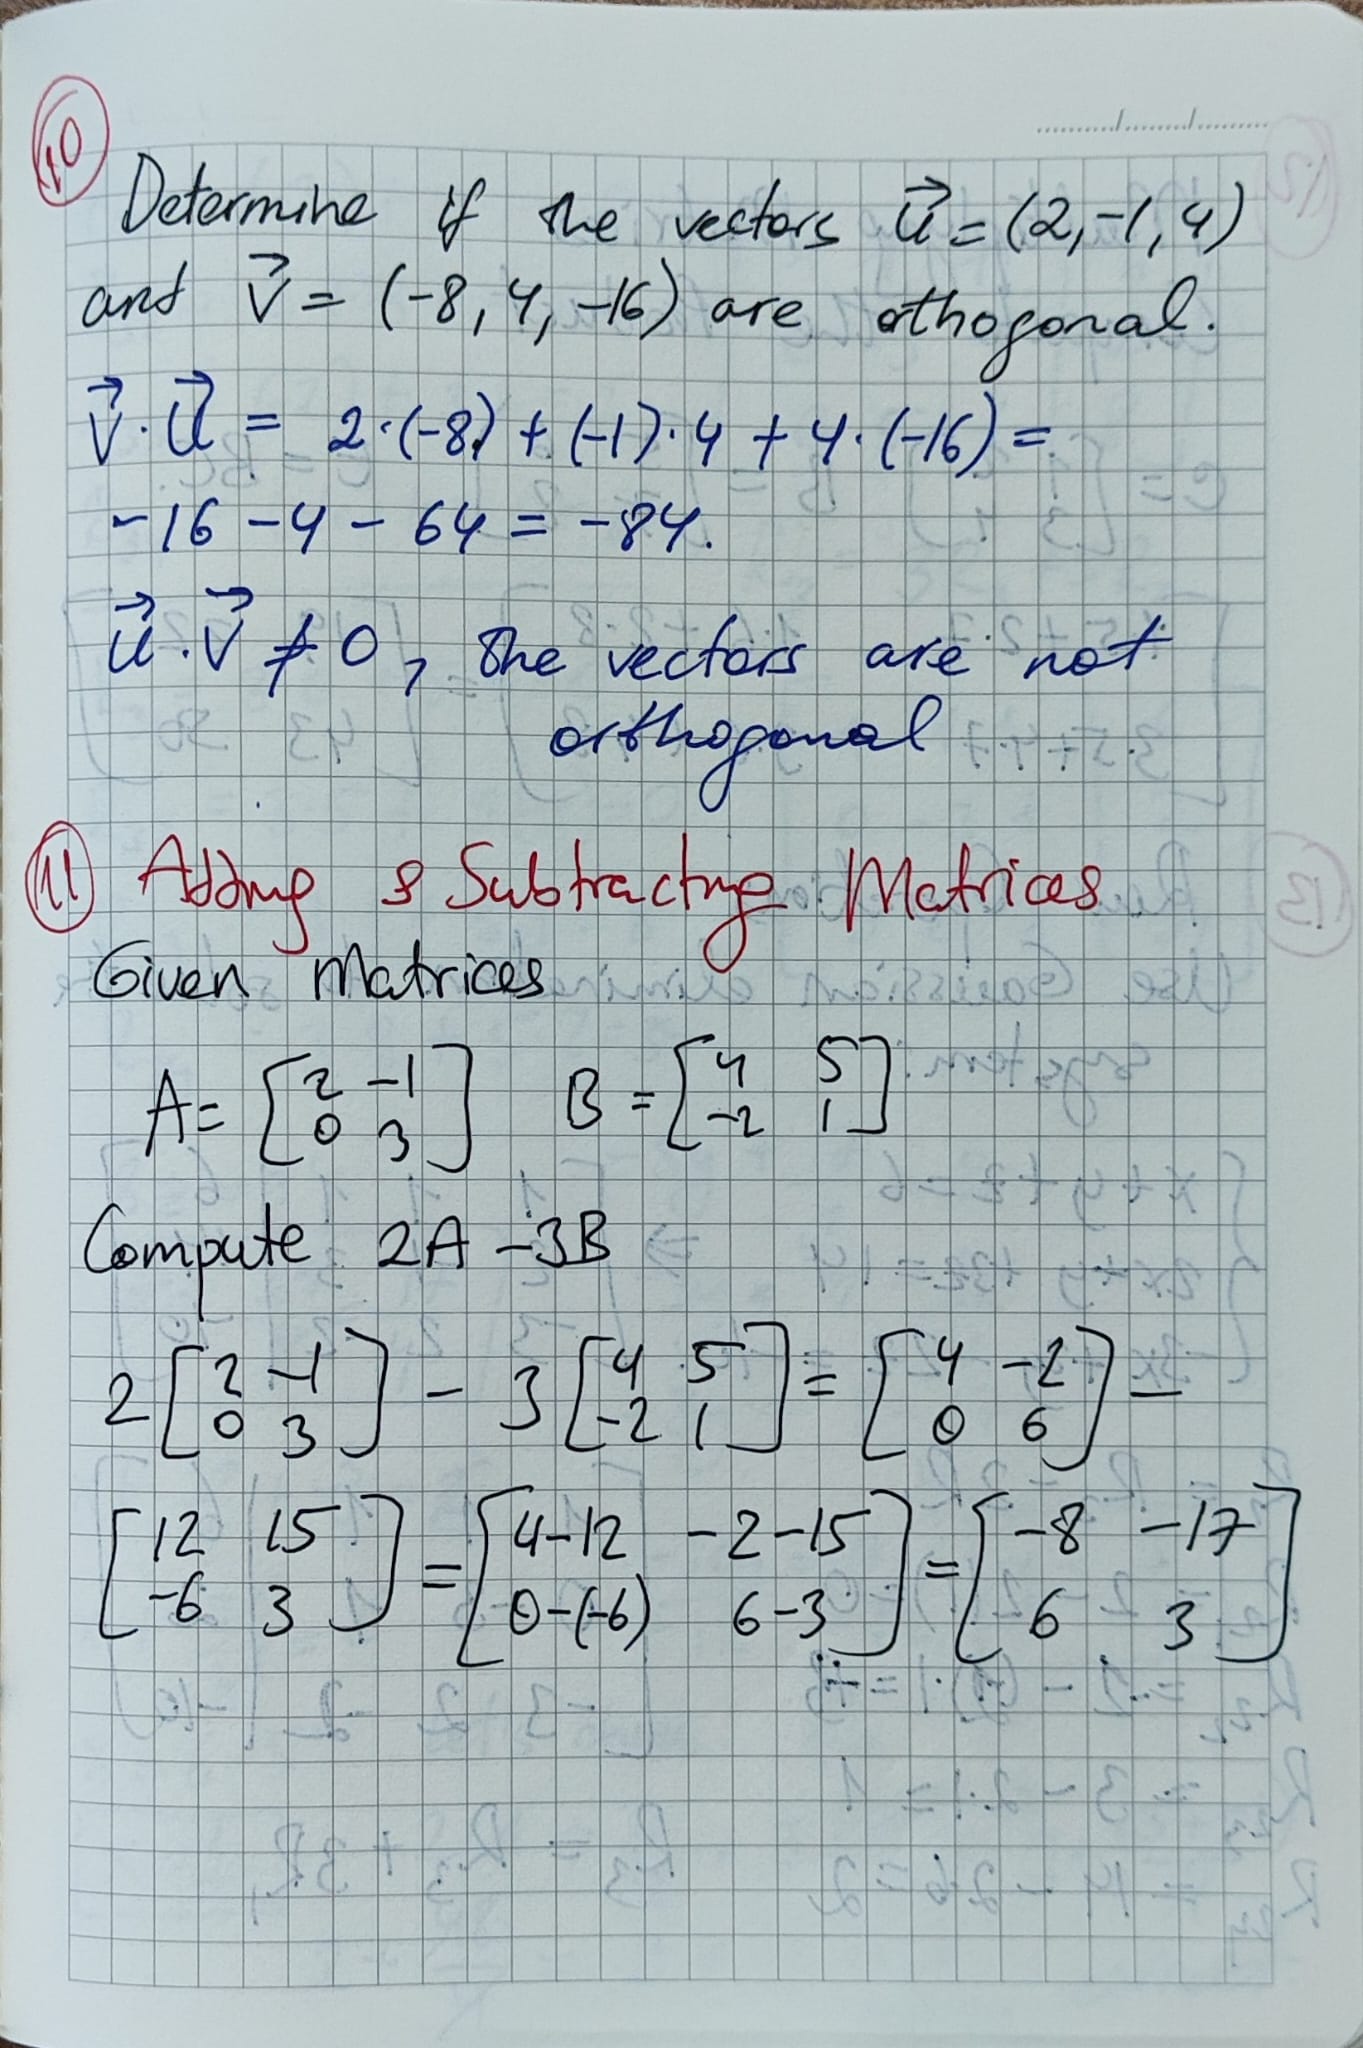 10
Determine if the vectors u⃗ = (2,-1,4)
and v⃗ = (-8, 4, -16) are othogonal.
v⃗·u⃗ = 2·(-8) + (-1)·4 + 4·(-16) =
-16 -4 - 64 = -84.
u⃗·v⃗ ≠ 0, the vectors are not
orthogonal
11 Adding & Subtracting Matrices
Given Matrices
A= [2 -1; 0 3] B = [4 5; -2 1]
Compute 2A -3B
2[2 -1; 0 3] - 3[4 5; -2 1] = [4 -2; 0 6] -
[12 15; -6 3] = [4-12 -2-15; 0-(-6) 6-3] = [-8 -17; 6 3]